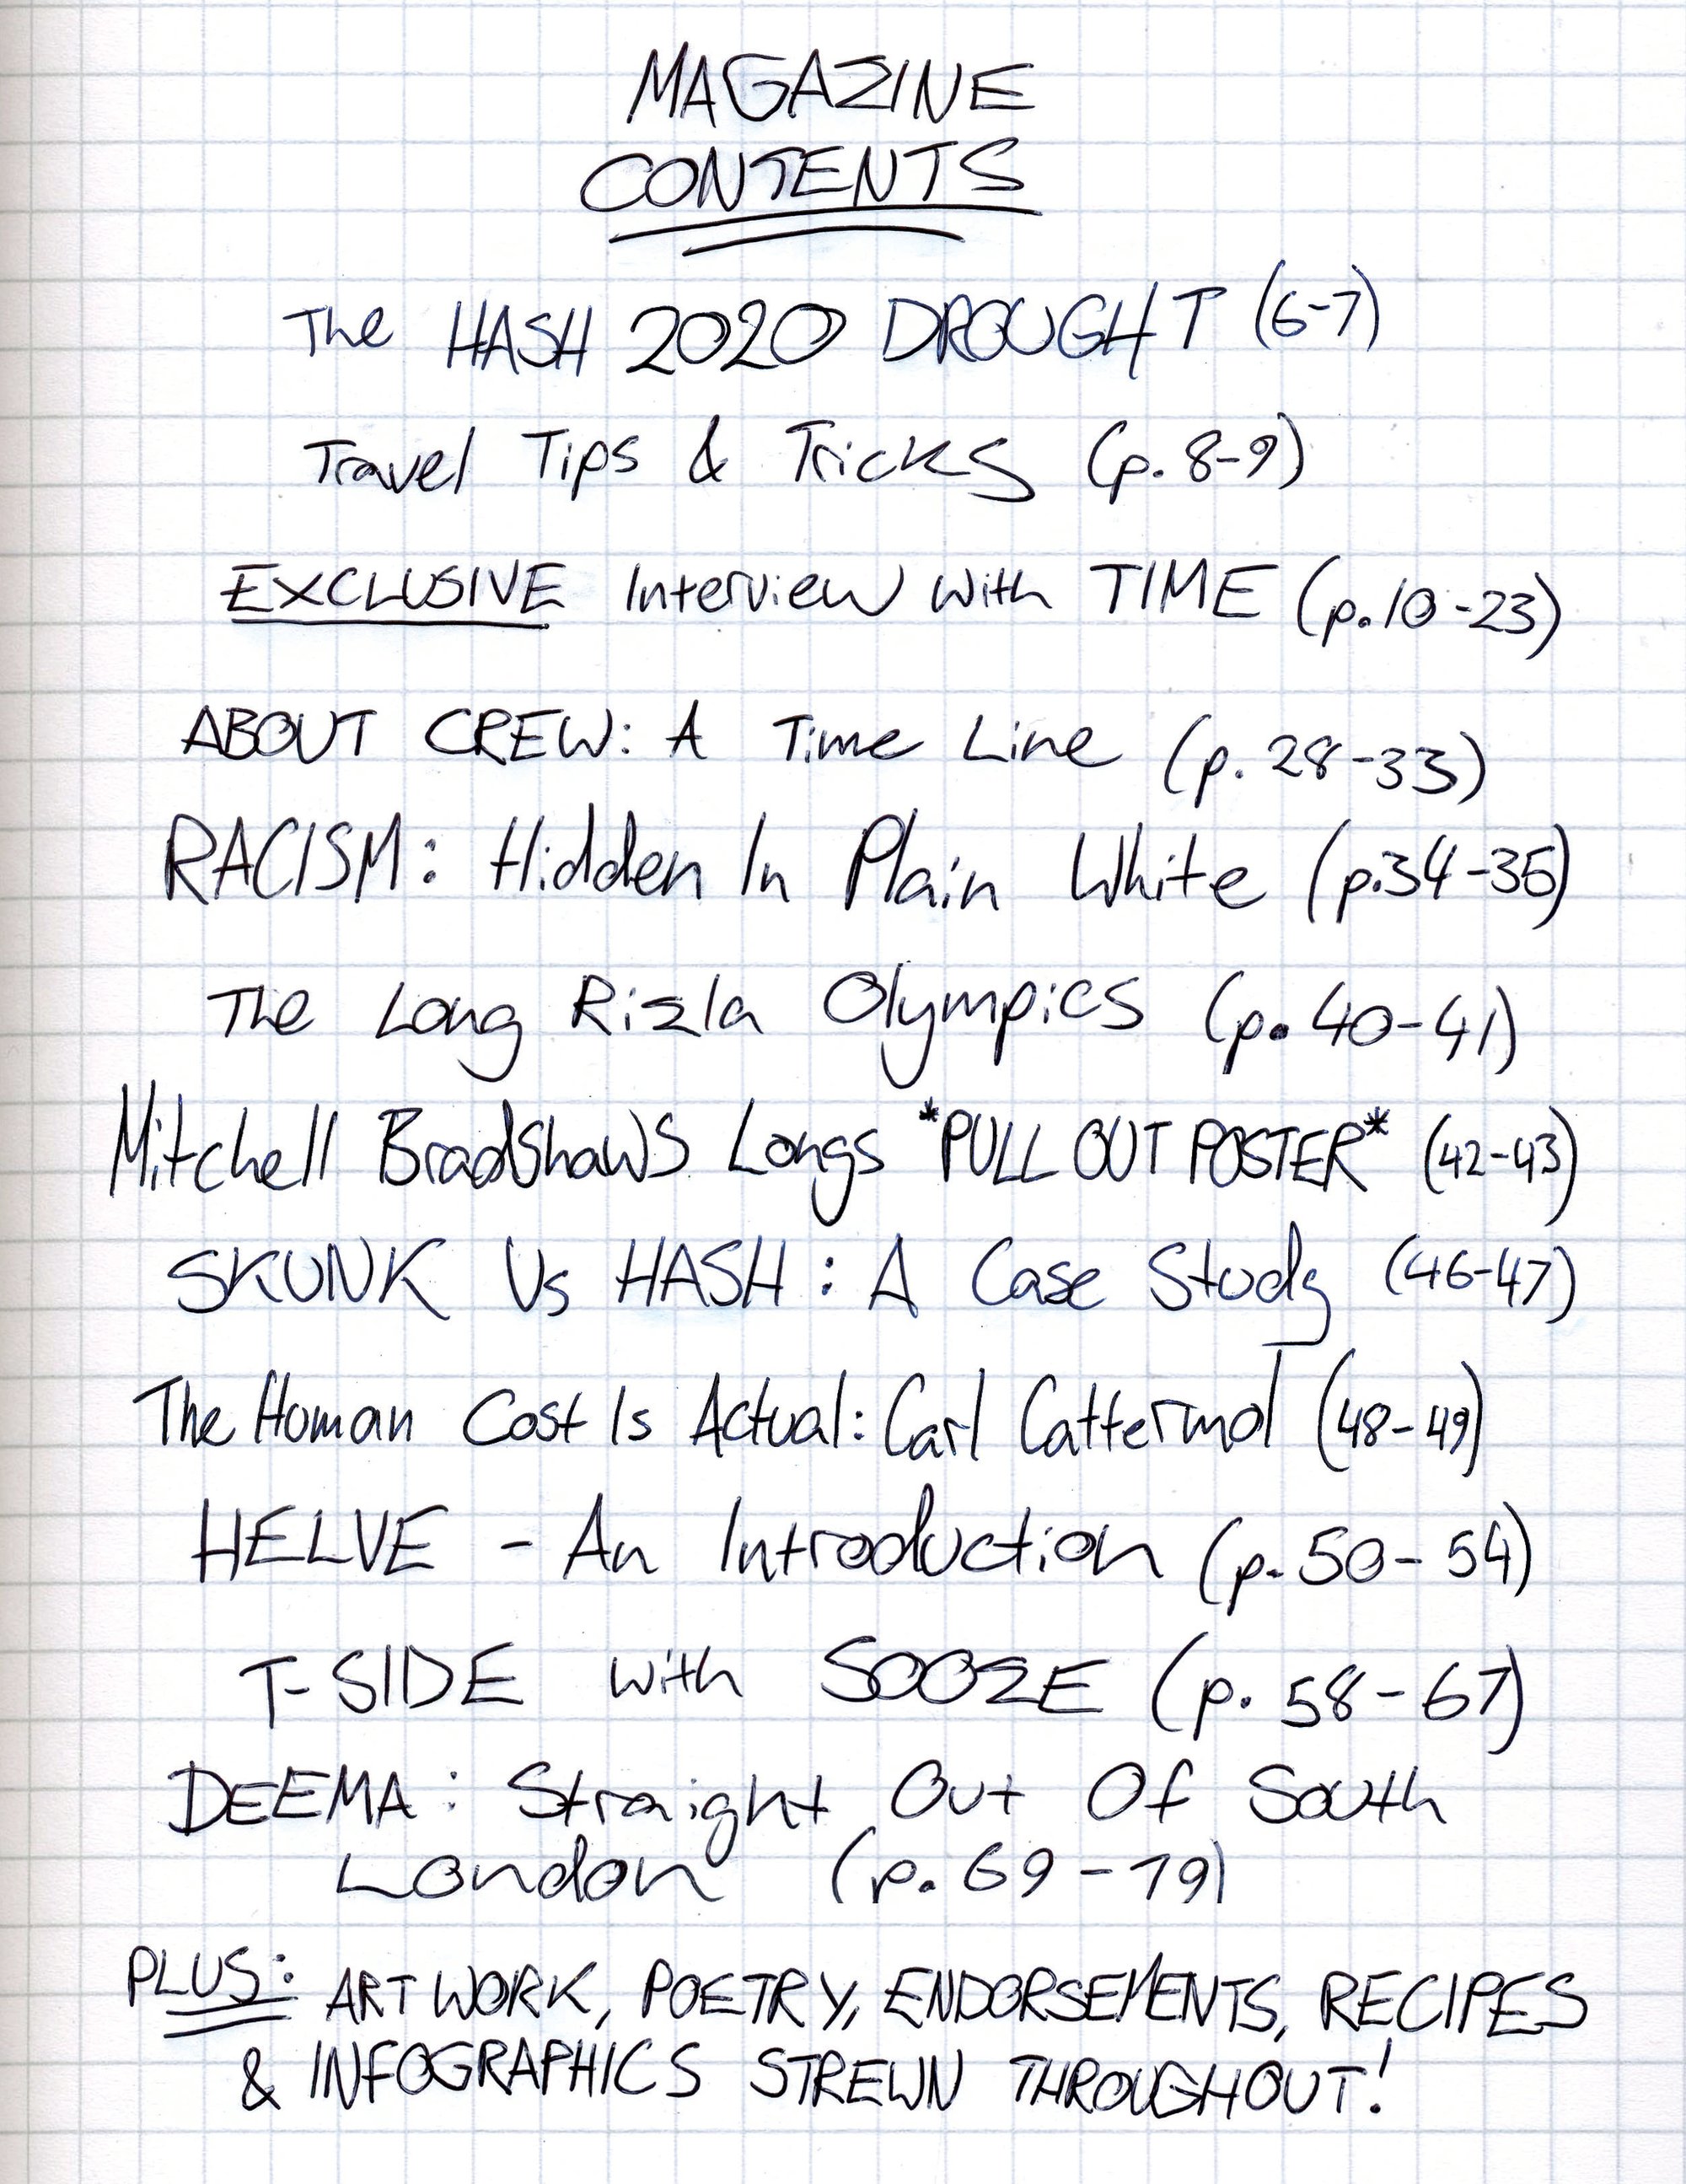 MAGAZINE
CONTENTS
The HASH 2020 DROUGHT (6-7)
Travel Tips & Tricks (p. 8-9)
EXCLUSIVE Interview with TIME (p.10-23)
ABOUT CREW: A Time Line (p. 28-33)
RACISM: Hidden In Plain White (p.34-35)
The Long Rizla Olympics (p. 40-41)
Mitchell Bradshaws Longs *PULL OUT POSTER* (42-43)
SKUNK Vs HASH: A Case Study (46-47)
The Human Cost Is Actual: Carl Cattermol (48-49)
HELVE - An Introduction (p. 50-54)
T-SIDE with SOOZE (p. 58-67)
DEEMA: Straight Out Of South
London (p. 69-79)
PLUS: ARTWORK, POETRY, ENDORSEMENTS, RECIPES
& INFOGRAPHICS STREWN THROUGHOUT!